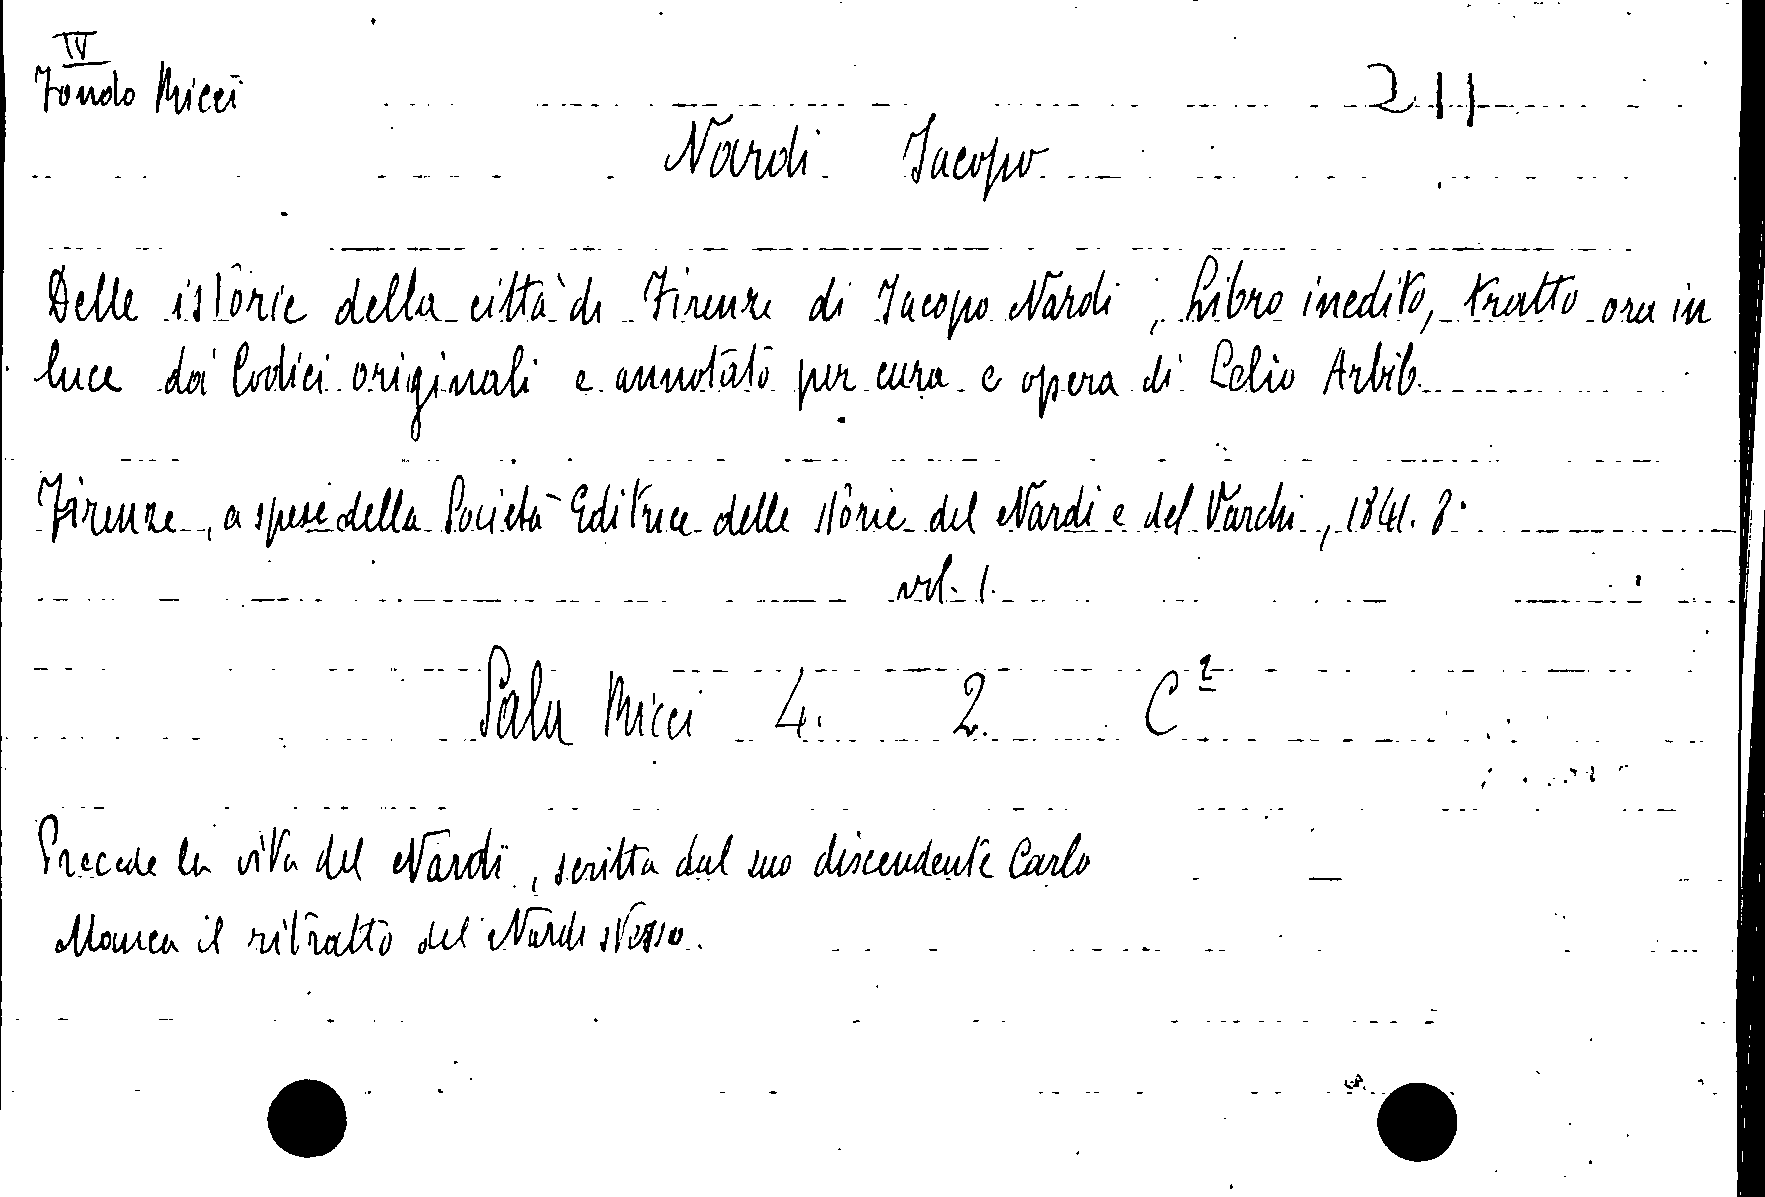 IV
Fondo Ricci
211
Nardi Jacopo
Delle istorie della città di Firenze di Jacopo Nardi, Libro inedito, tratto ora in
luce dai Codici originali e annotato per cura e opera di Lelio Arbib.
Firenze, a spese della Società Editrice delle storie del Nardi e del Varchi, 1841. 8.
vol. 1.
Sala Ricci 4. 2. C²
Precede la vita del Nardi, scritta dal suo discendente Carlo
Manca il ritratto del Nardi stesso.